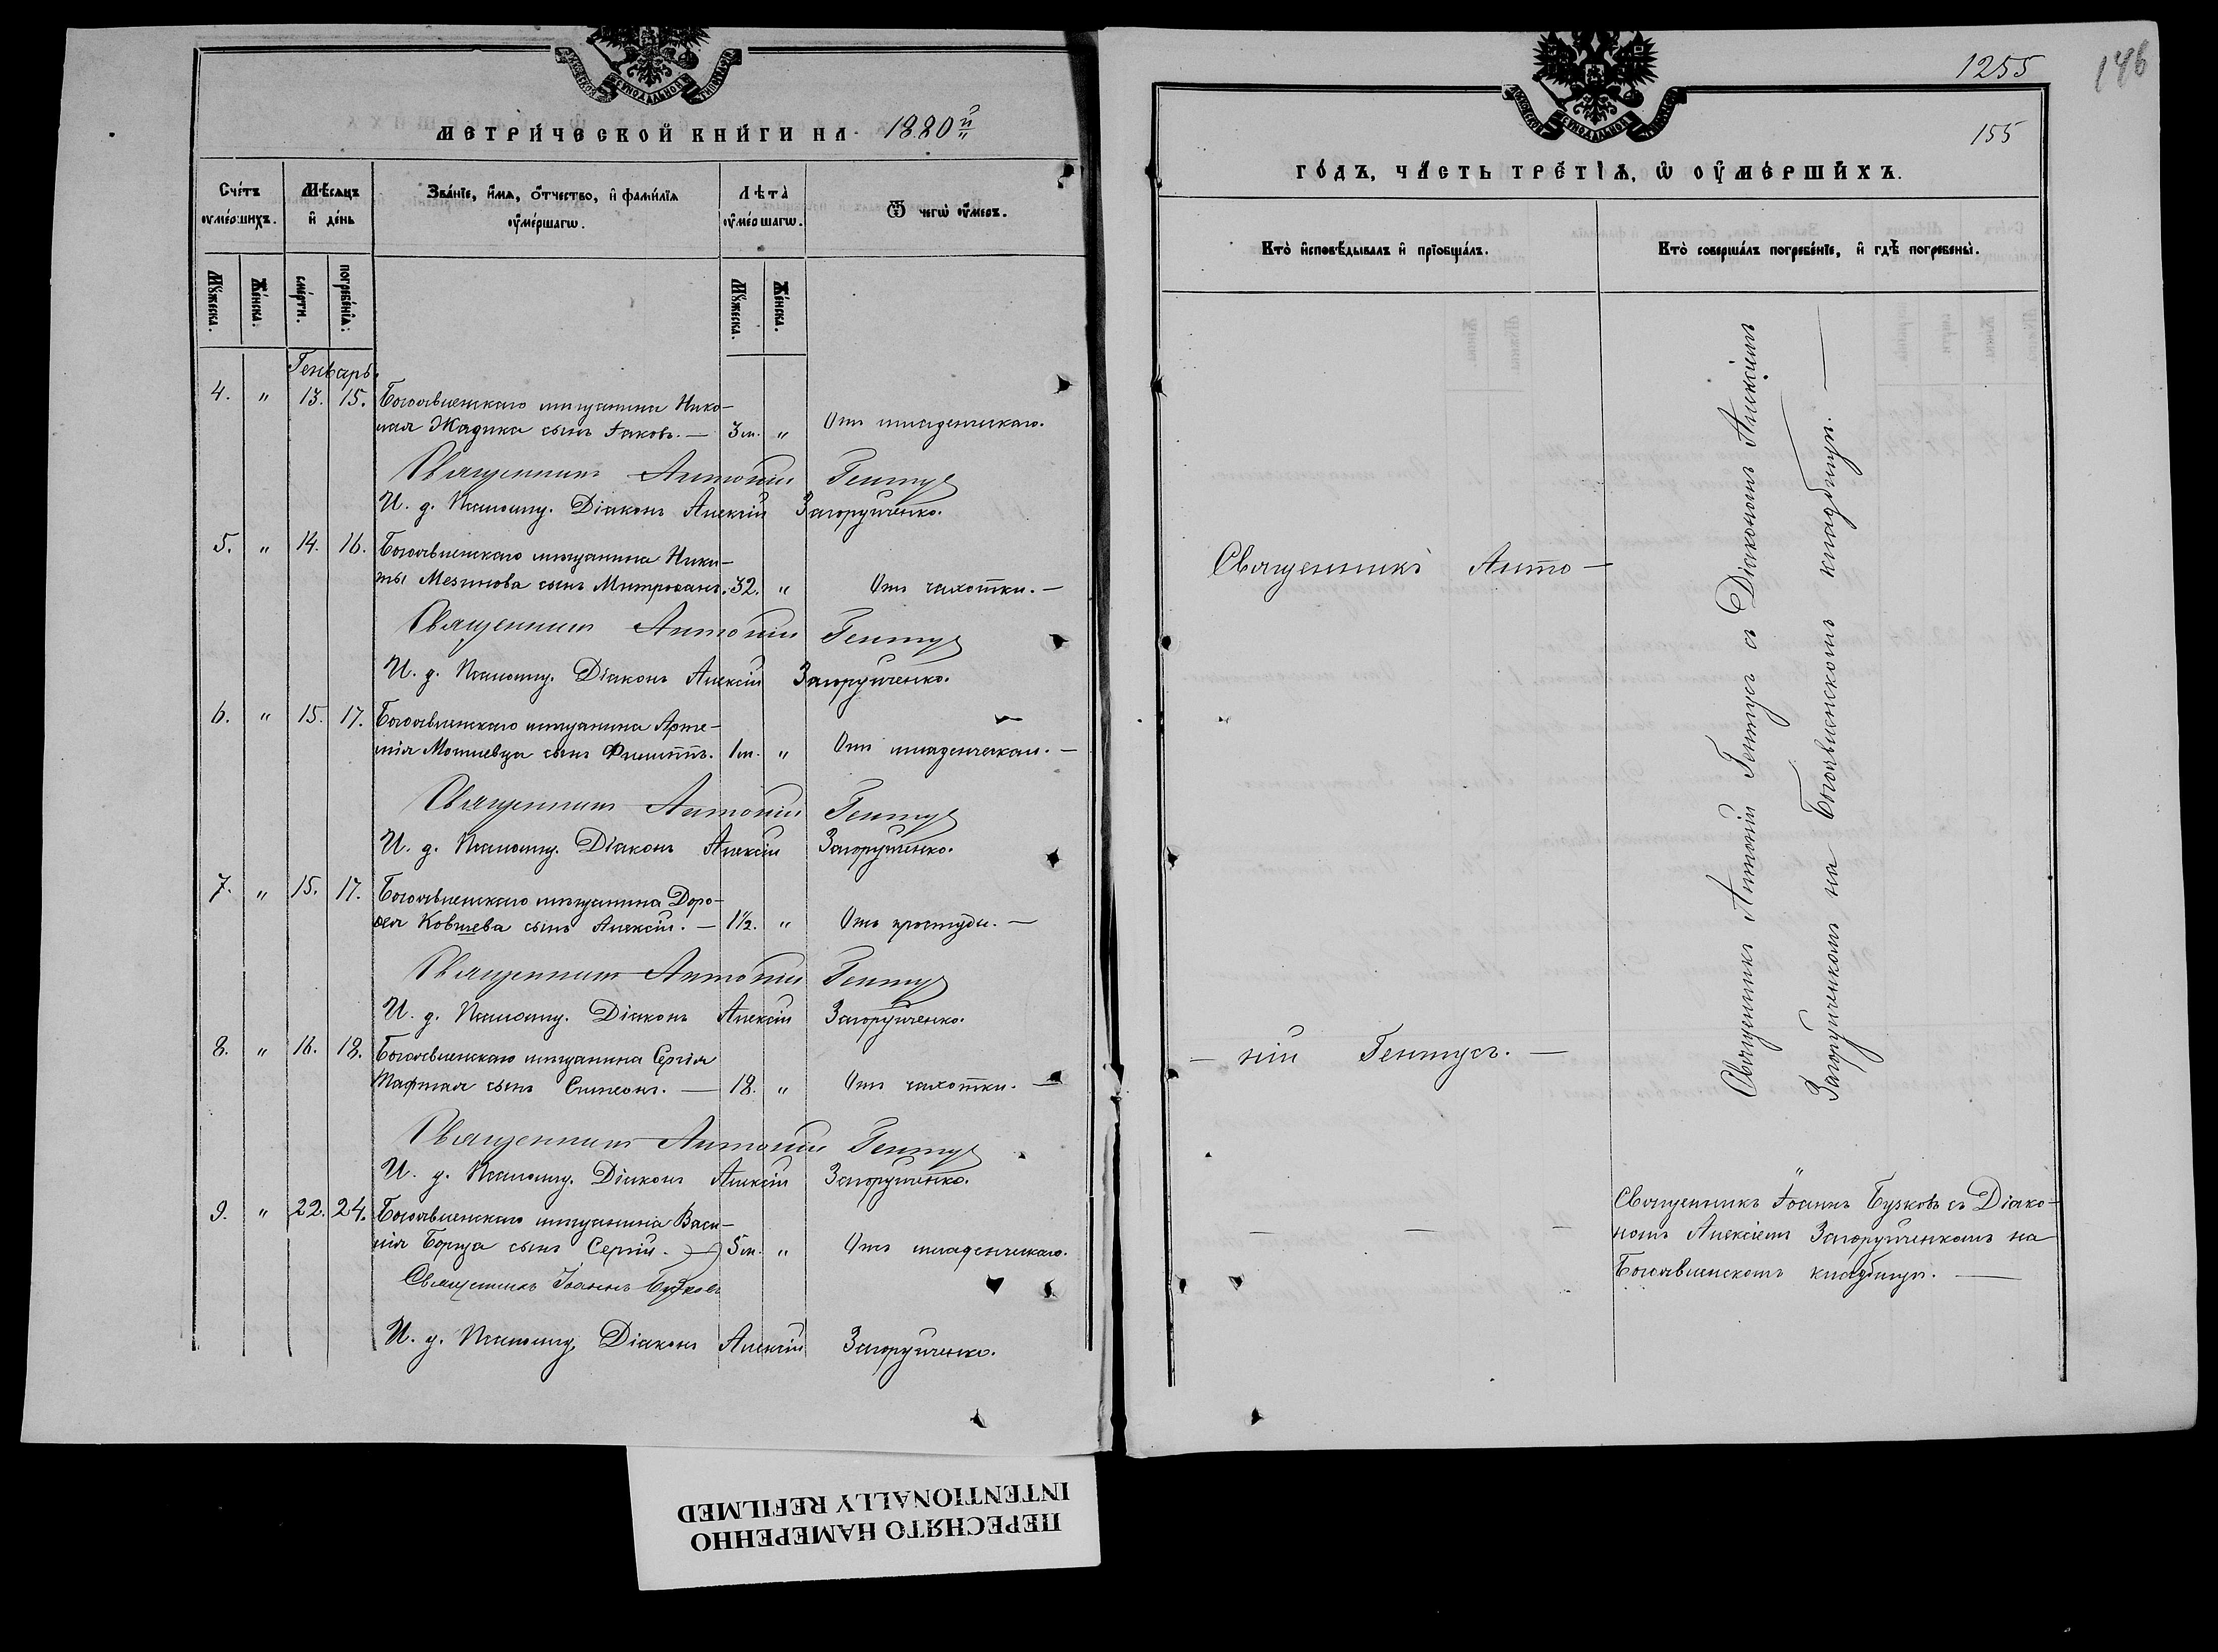 МЕТРИ́ЧЕСКОЙ КНИ́ГИ НА 1880й
Сче́тъ ᲂу҆ме́ршихъ.
Мѣ́сяцъ и҆ де́нь
Зва́нїе, и҆́мѧ, ѻ҆́тчество, и҆ фами́лїѧ ᲂу҆ме́ршагѡ.
Лѣ́та ᲂу҆ме́ршагѡ.
Ѿ чегѡ̀ ᲂу҆́меръ.
Мꙋ́жеска.
Же́нска.
сме́рти.
погребе́нїѧ:
Мꙋ́жеска.
Же́нска.
Генварь.
4. " 13. 15. Богоявленскаго мѣщанина Нико-
лая Жадика сынъ Іаковъ. — 3 м. " Отъ младенческаго.
Священникъ Антоній Гентус
И. д. Псаломщ. Діаконъ Алексій Загоруйченко.
5. " 14. 16. Богоявленскаго мѣщанина Ники-
ты Мезинова сынъ Митрофанъ. 32. " Отъ чахотки. —
Священникъ Антоній Гентус
И. д. Псаломщ. Діаконъ Алексій Загоруйченко.
6. " 15. 17. Богоявленскаго мѣщанина Арте-
мія сынъ Филиппъ. 1 м. " Отъ младенческаго. —
Священникъ Антоній Гентус
И. д. Псаломщ. Діаконъ Алексій Загоруйченко.
7. " 15. 17. Богоявленскаго мѣщанина Доро-
ѳея Ковшева сынъ Алексій. — 1½. " Отъ простуды. —
Священникъ Антоній Гентус
И. д. Псаломщ. Діаконъ Алексій Загоруйченко.
8. " 16. 18. Богоявленскаго мѣщанина Сергія
сынъ Симеонъ. — 18. " Отъ чахотки. —
Священникъ Антоній Гентус
И. д. Псаломщ. Діаконъ Алексій Загоруйченко.
9. " 22. 24. Богоявленскаго мѣщанина Васи-
лія Борца сынъ Сергій. — 5 м. " Отъ младенческаго.
Священникъ Іоаннъ Бузковъ
И. д. Псаломщ. Діаконъ Алексій Загоруйченко.
1255
146
155
ГО́ДЪ, ЧА́СТЬ ТРЕ́ТЇѦ, Ѡ҆ ᲂУ҆МЕ́РШИХЪ.
Кто̀ и҆сповѣ́дывалъ и҆ прїѡбща́лъ.
Кто̀ соверша́лъ погребе́нїе, и҆ гдѣ̀ погребены̀.
Священникъ Анто-
— ній Гентусъ. —
Священникъ Антоній Гентусъ съ Діакономъ Алексіемъ
Загоруйченкомъ на Богоявленскомъ кладбищѣ. —
— — —
Священникъ Іоаннъ Бузковъ съ Діако-
номъ Алексіемъ Загоруйченкомъ на
Богоявленскомъ кладбищѣ. —
ПЕРЕСНЯТО НАМЕРЕННО
INTENTIONALLY REFILMED